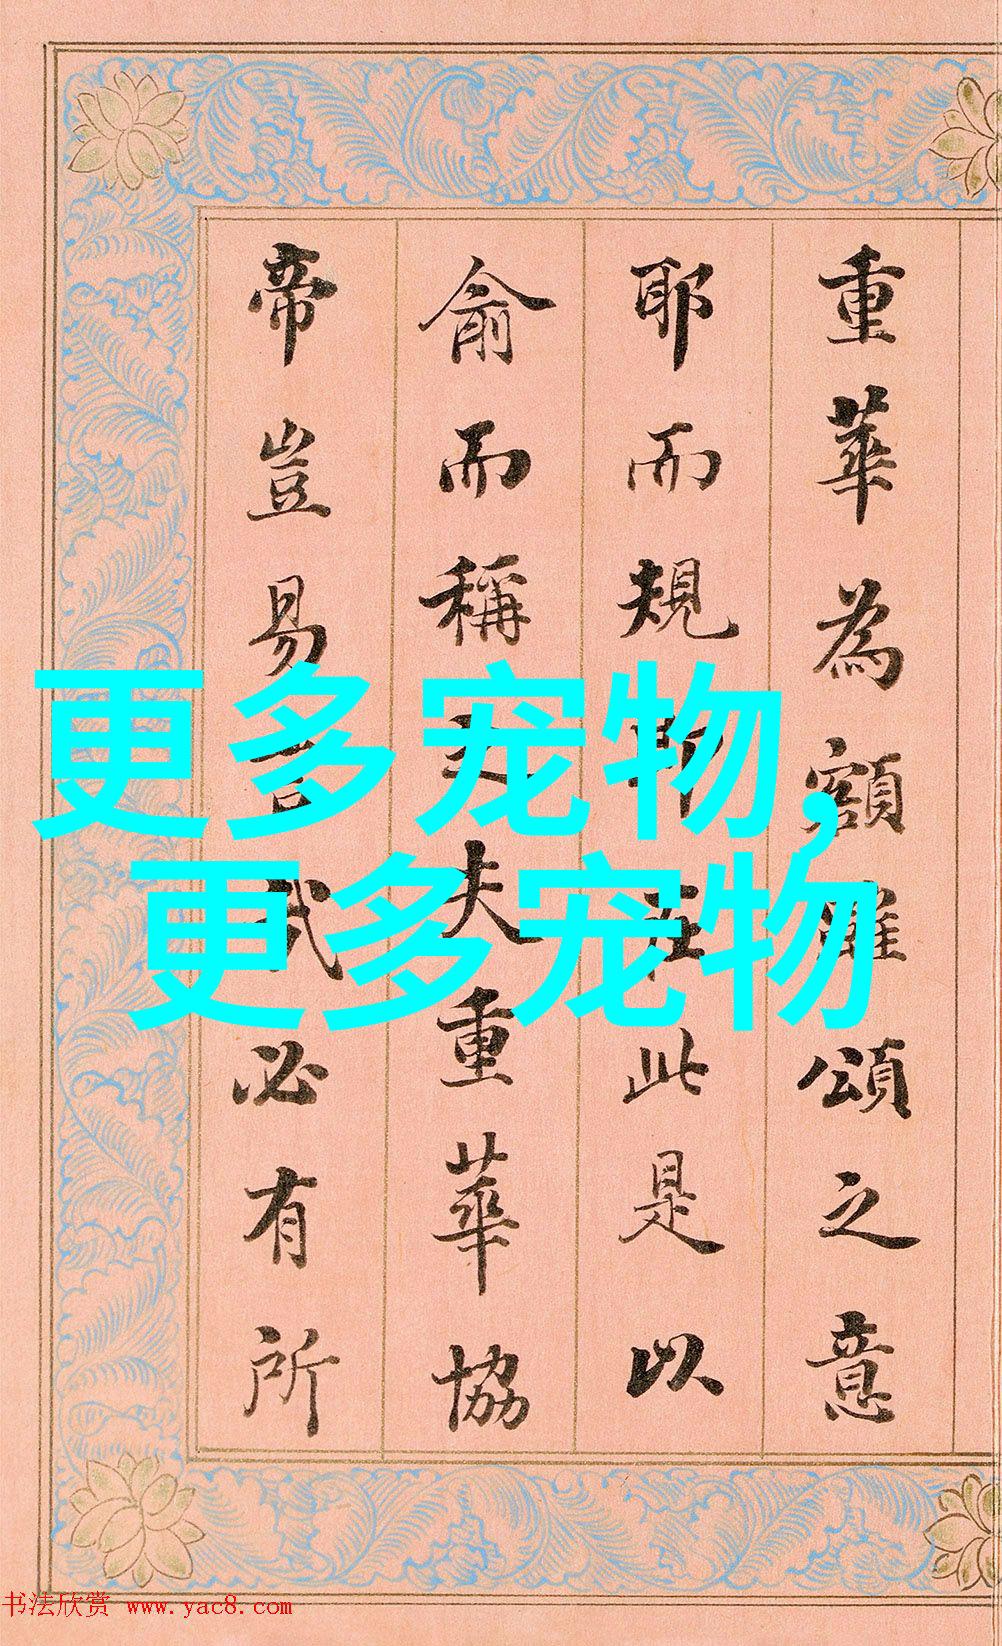 重華為額雖頌之意
耶而規即在此是以
俞而稱之夫重華協
帝豈易言哉必有所
更多宠物,
更多宠物
书法欣赏 www.yac8.com